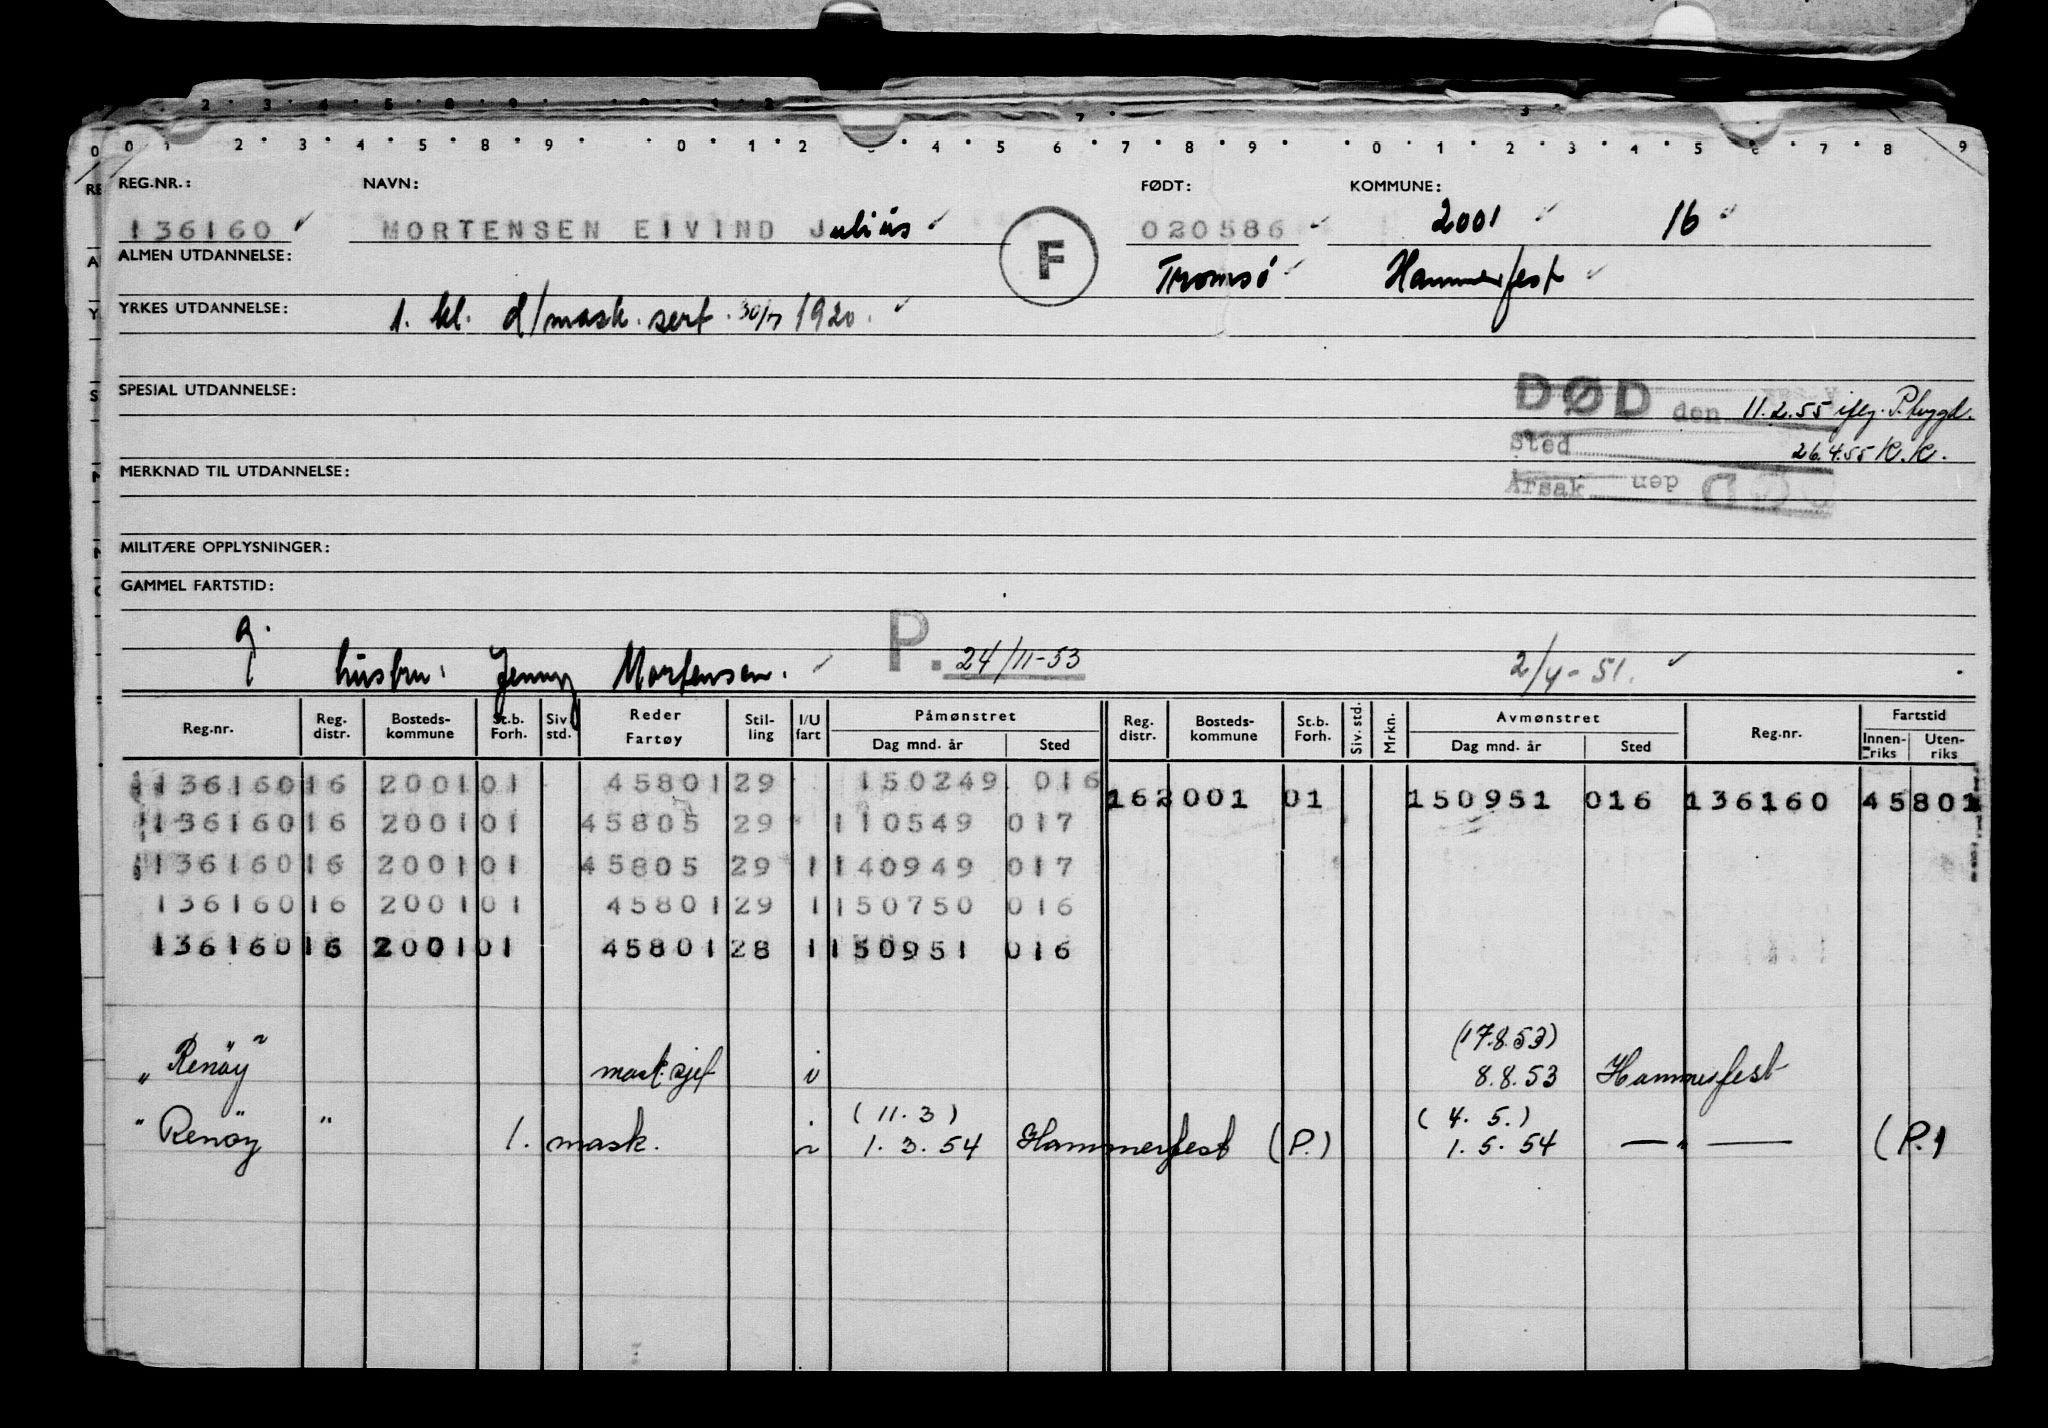 REG.NR.: NAVN: FØDT: KOMMUNE:
136160 MORTENSEN EIVIND Julius F 020586 2001 16
ALMEN UTDANNELSE: Tromsö Hammerfest
YRKES UTDANNELSE: 1. kl. d/mask. sert. 1920.
SPESIAL UTDANNELSE:
DØD den 11.2.55 iflg. P.trygd.
Sted 26.4.55 K.K.
MERKNAD TIL UTDANNELSE:
Årsak
MILITÆRE OPPLYSNINGER:
GAMMEL FARTSTID:
g.
hustru: Jenny Mortensen. P. 24/11-53 2/4-51.
Reg.nr. Reg. distr. Bosteds-kommune St.b. Forh. Siv. std. Reder Fartøy Stil-ling I/U fart Påmønstret Dag mnd. år Sted Reg. distr. Bosteds-kommune St.b. Forh. Siv. std. Mrkn. Avmønstret Dag mnd. år Sted Reg.nr. Fartstid Innen-riks Uten-riks
136160 16 2001 01 45801 29 150249 016 16 2001 01 150951 016 136160 45801
136160 16 2001 01 45805 29 110549 017
136160 16 2001 01 45805 29 1 140949 017
136160 16 2001 01 45801 29 1 150750 016
136160 16 2001 01 45801 28 1 150951 016
(17.8.53)
"Renöy" mask.sjef i 8.8.53 Hammerfest
(11.3) (4.5.)
"Renöy" 1. mask. i 1.3.54 Hammerfest (P.) 1.5.54 —"— (P.)